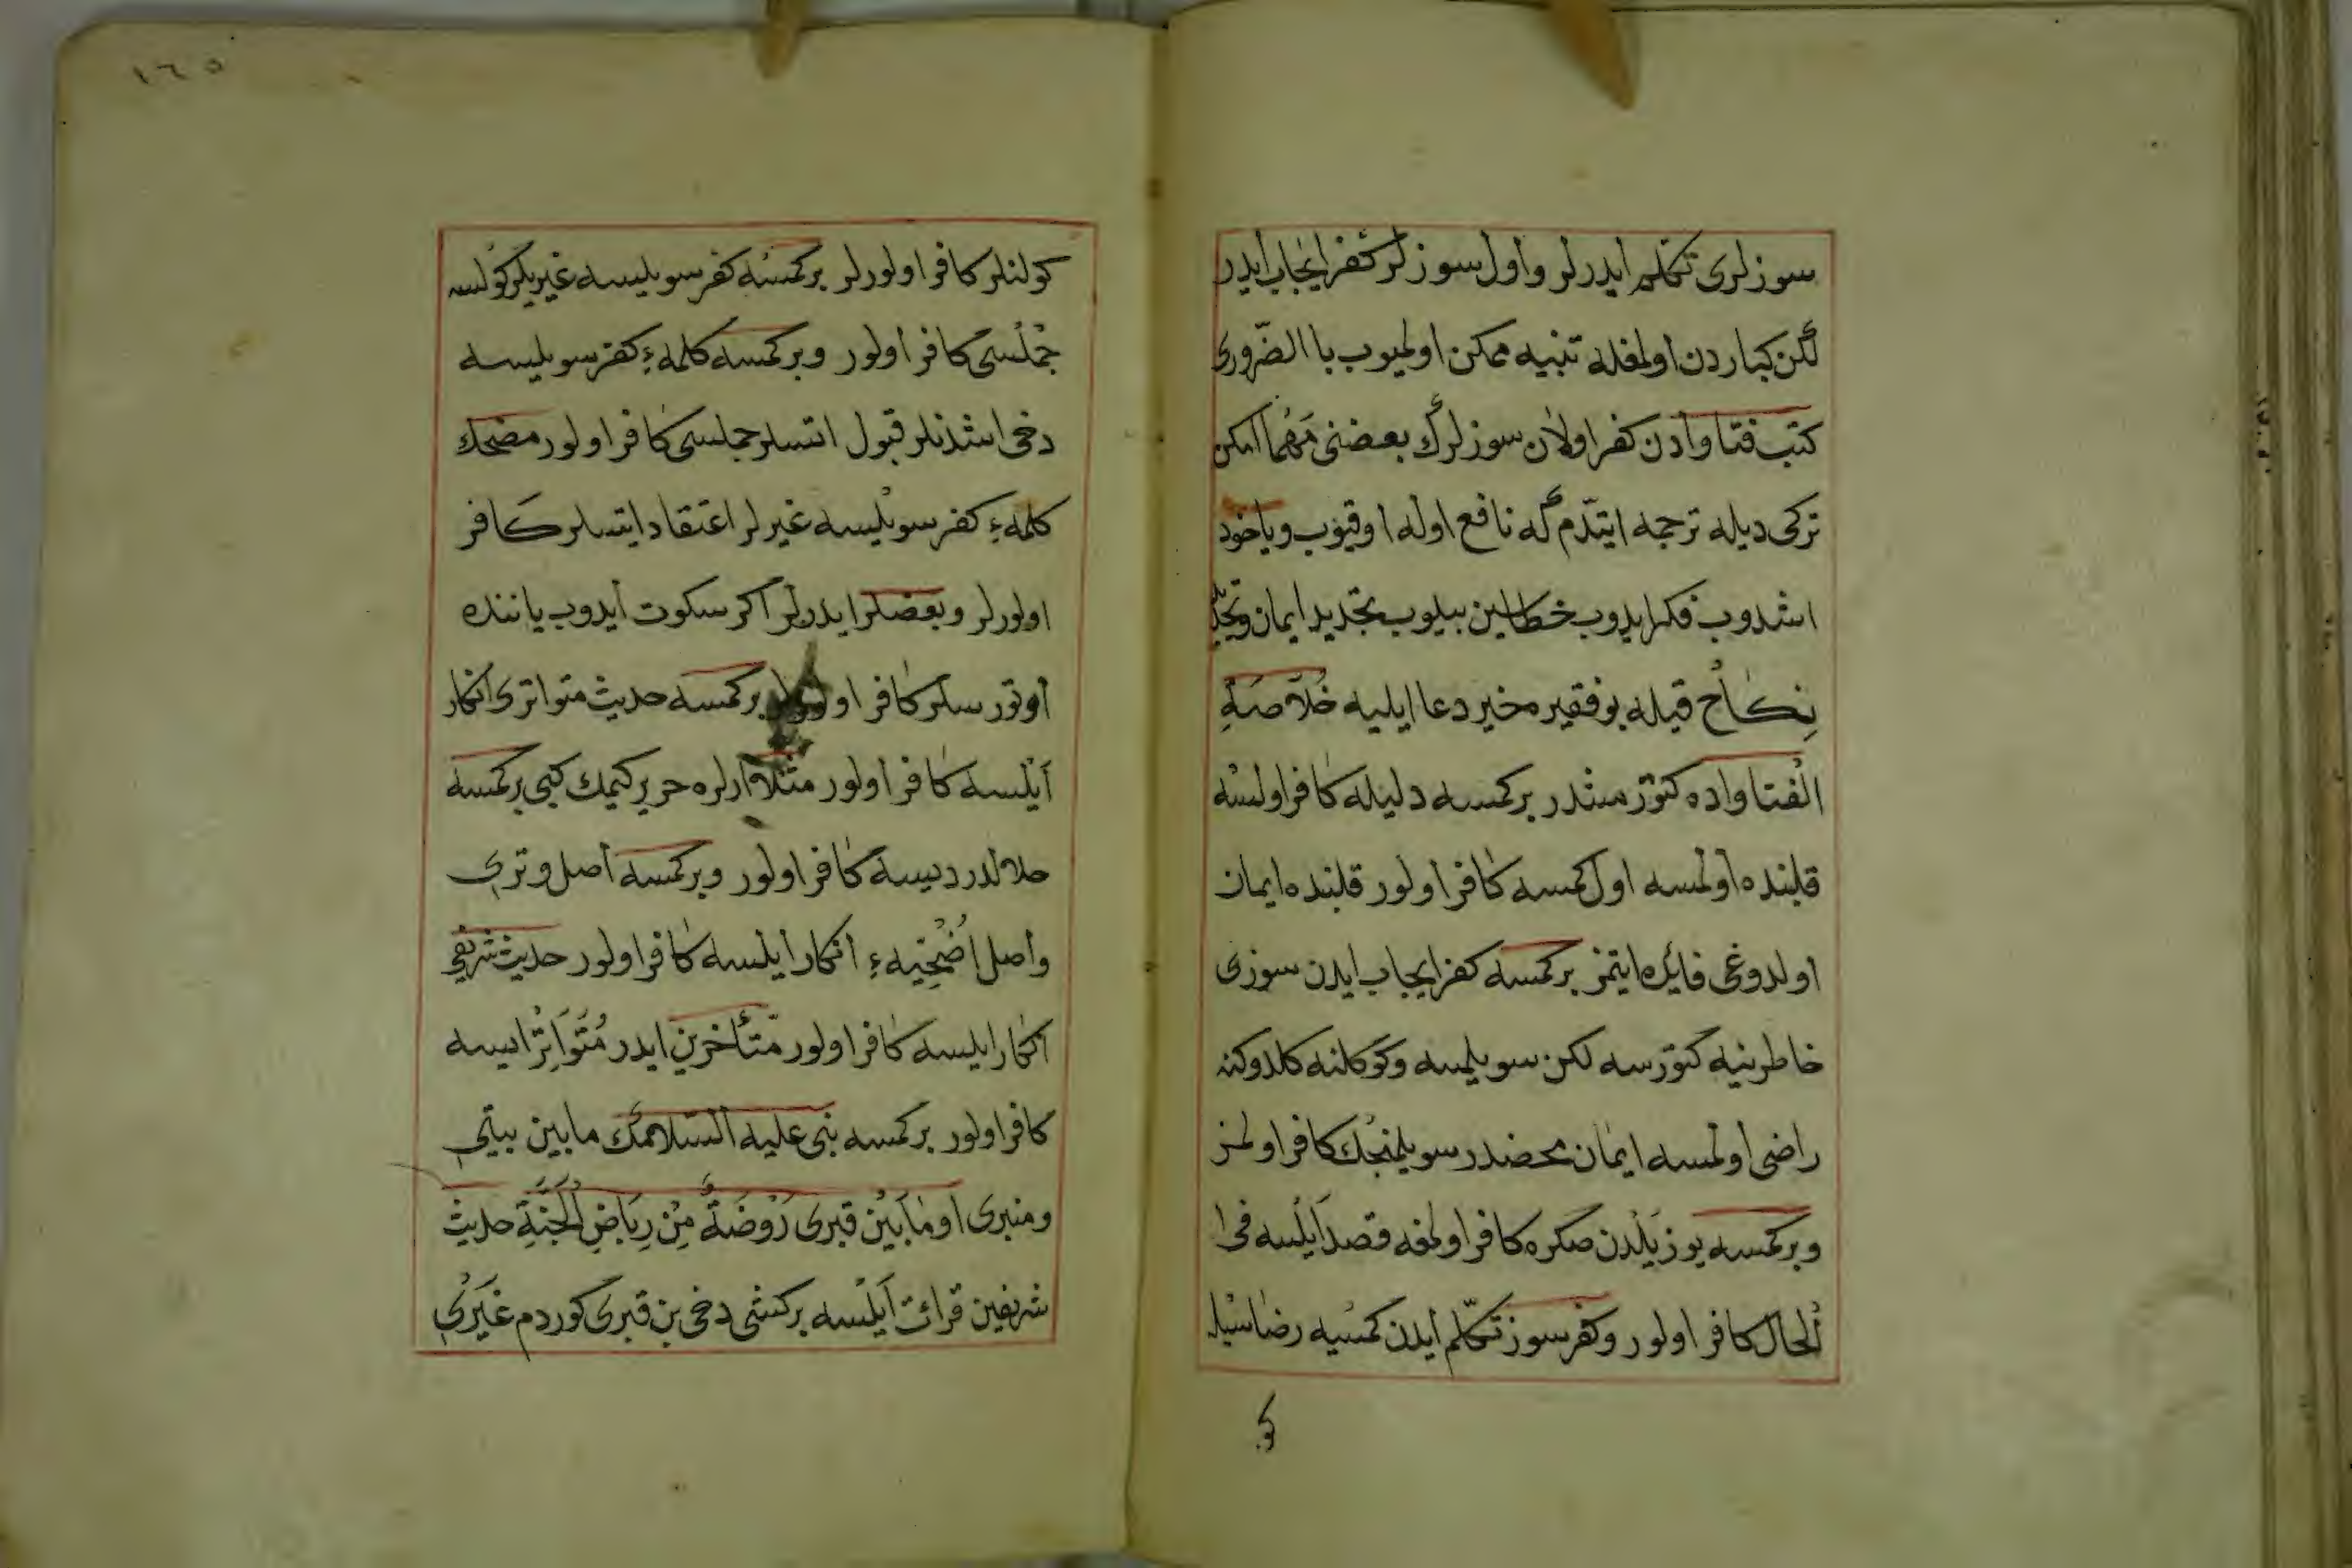 سوزلرى تكلم ايدرلر واول سوزلر كفر ايجاب ايدر
لكن كباردن اولمغله تنبيه ممكن اولميوب با الضّرورى
كتب فتاوادن كفر اولان سوزلرك بعضنى مَهْمَا امكن
تركى ديله ترجمه ايتدّم كه نافع اوله اوقيوب وياخود
اشدوب فكر ايدوب خطاسين بيلوب تجديد ايمان وتجديد
نِكاح قيله بو فقيره خير دعا ايليه خُلَاصَةِ
الْفتاواده كتورمشدر بر كمسه دليله كافر اولسه
قلبنده اولمسه اول كمسه كافر اولور قلبنده ايمان
اولدوغى فايده ايتمز بر كمسه كفر ايجاب ايدن سوزى
خاطرينه كتورسه لكن سويلمسه وكوكلنه كلدوكنه
راضى اولمسه ايمان محضدر سويلمنجك كافر اولمز
وبر كمسه يوز يلدن صكره كافر اولمغه قصد ايلسه فى
الحال كافر اولور وكفر سوز تكلّم ايدن كمسيه رضاسيله
كو
١٦٥
كولنلر كافر اولورلر بر كمسه كفر سويليسه غيريلر كولسه
جملسى كافر اولور وبر كمسه كلمهٔ كفر سويليسه
دخى اشدنلر قبول اتسلر جملسى كافر اولور مضحك
كلمهٔ كفر سويليسه غيرلر اعتقاد ايتسلر كافر
اولورلر وبعضلر ايدرلر اكر سكوت ايدوب ياننده
اوتورسلر كافر اولورلر بر كمسه حديث متواترى انكار
ايلسه كافر اولور مثلا ارلره حرير كيمك كبى بر كمسه
حلالدر ديسه كافر اولور وبر كمسه اصل وترى
واصل اُضْحِيّه ءِ انكار ايلسه كافر اولور حديث شريفى
انكار ايليسه كافر اولور متأخرين ايدر مُتَوَاتِرْ ايسه
كافر اولور بر كمسه نبى عليه السلامك مابين بيتى
ومنبرى او مٰابَيْن قبرى رَوْضَةٌ مِنْ رِيَاضِ الْجَنَّةِ حديث
شريفين قرائت ايلسه بر كشى دخى بن قبرى كوردم غيَرْى